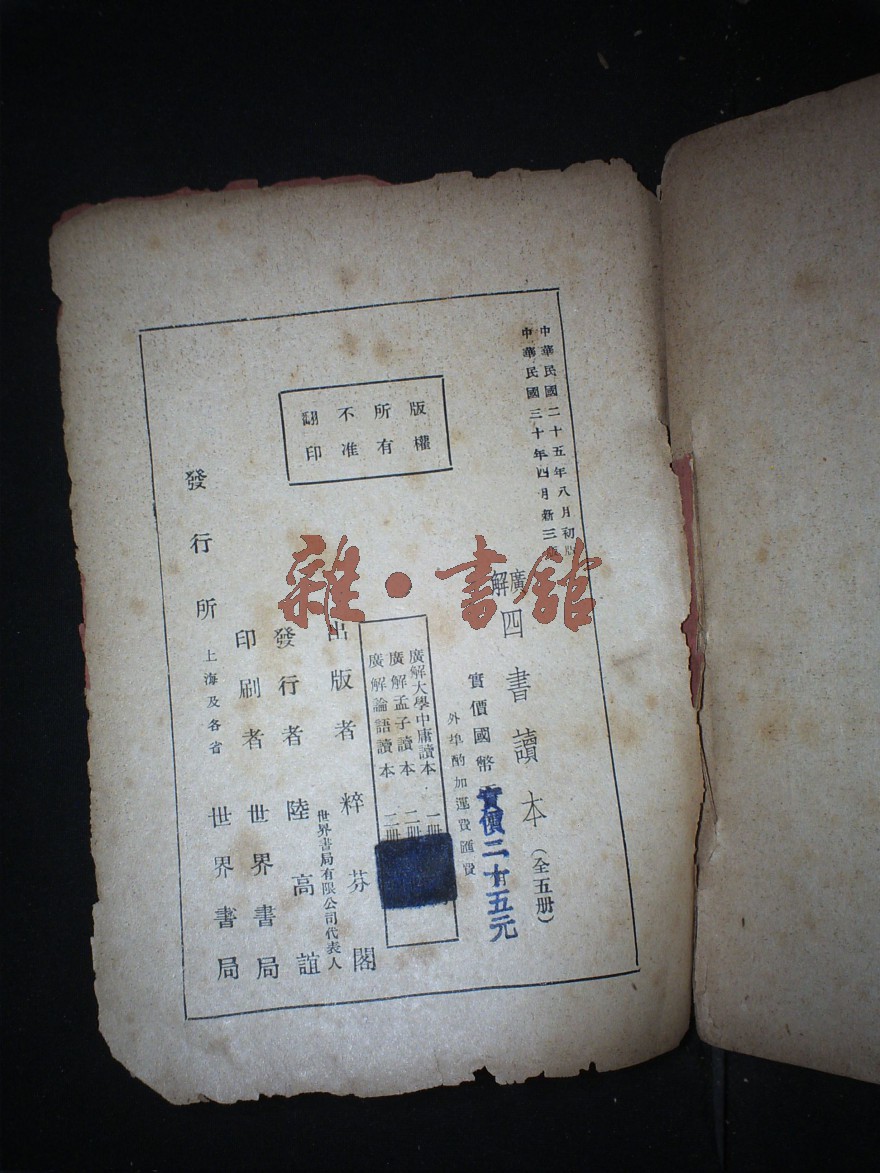 中華民國二十五年八月初版
中華民國三十年四月新三版
廣解四書讀本（全五册）
實價國幣
實價二十五元
外埠酌加運費匯費
廣解大學中庸讀本 一册
廣解孟子讀本 二册
廣解論語讀本 二册
版權
所有
不准
翻印
出版者 粹芬閣
世界書局有限公司代表人
發行者 陸高誼
印刷者 世界書局
發行所 上海及各省 世界書局
雜·書舘